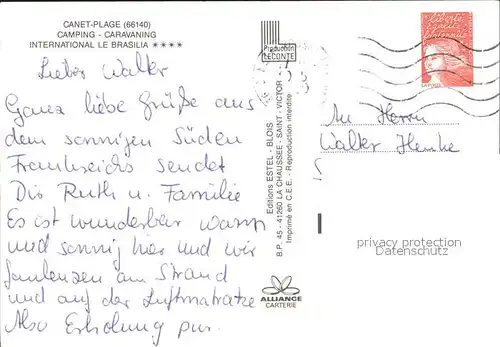 CANET-PLAGE (66140)
CAMPING - CARAVANING
INTERNATIONAL LE BRASILIA ****
Lieber Walter
Ganz liebe Grüße aus
dem sonnigen Süden
Frankreichs sendet
Dir Ruth u. Familie
Es ist wunderbar warm
und sonnig hier und wir
faulenzen am Strand
und auf der Luftmatratze
Also Erholung pur.
Production
LECONTE
Editions ESTEL - BLOIS
B.P. 45 - 41260 LA CHAUSSEE - SAINT - VICTOR
Imprimé en C.E.E. - Reproduction interdite
ALLIANCE
CARTERIE
liberté
égalité
fraternité
LA POSTE
An Herrn
Walter
privacy protection
Datenschutz